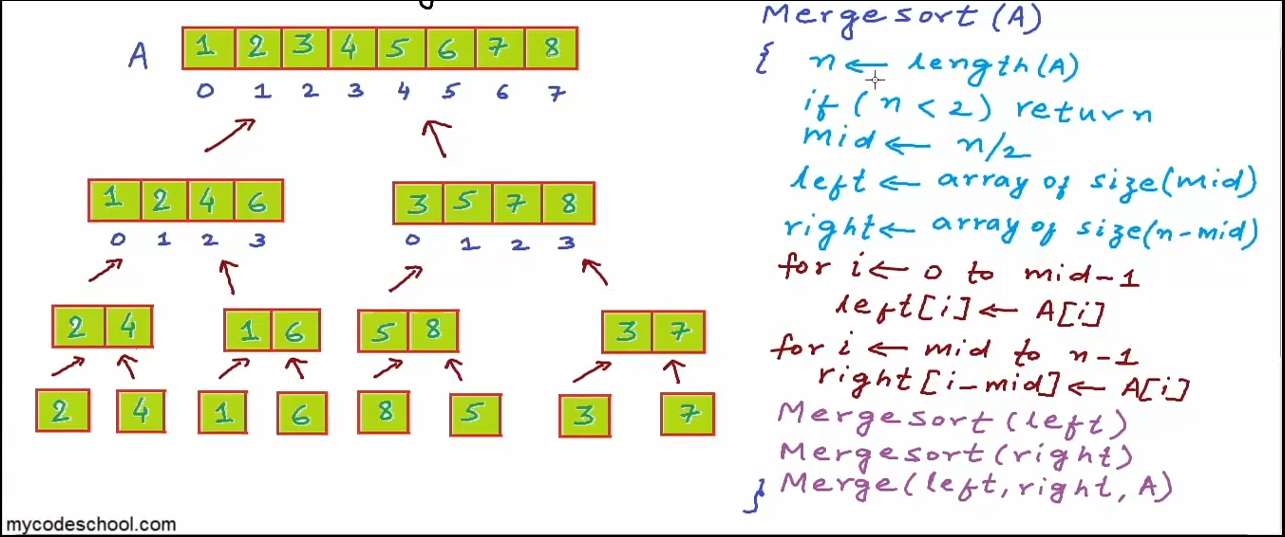 A 1 2 3 4 5 6 7 8
0 1 2 3 4 5 6 7
1 2 4 6 3 5 7 8
0 1 2 3 0 1 2 3
2 4 1 6 5 8 3 7
2 4 1 6 8 5 3 7
Mergesort(A)
{ n ← length(A)
if (n < 2) return
mid ← n/2
left ← array of size(mid)
right ← array of size(n-mid)
for i ← 0 to mid-1
left[i] ← A[i]
for i ← mid to n-1
right[i-mid] ← A[i]
Mergesort(left)
Mergesort(right)
} Merge(left, right, A)
mycodeschool.com